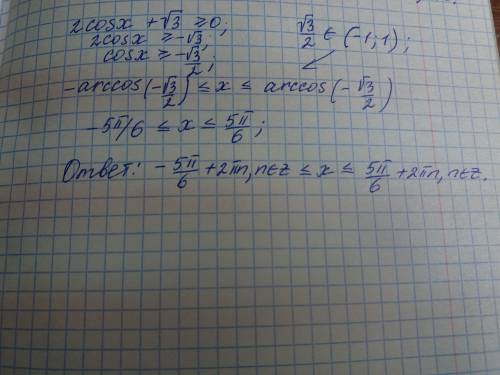 2cosx + √3 ≥ 0;
2cosx ≥ -√3;
cosx ≥ -√3/2;
√3/2 ∈ (-1; 1);
-arccos(-√3/2) ≤ x ≤ arccos(-√3/2)
-5π/6 ≤ x ≤ 5π/6;
Ответ: -5π/6 + 2πn, n∈z ≤ x ≤ 5π/6 + 2πn, n∈z.